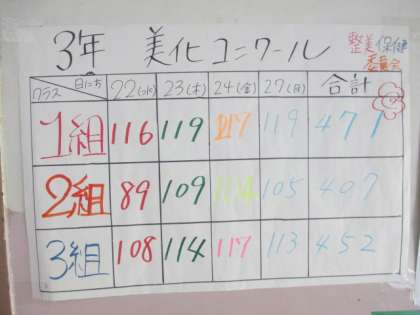 3年 美化コンクール
整美保健
委員会
クラス 日にち 22(水) 23(木) 24(金) 27(月) 合計
1組 116 119 117 119 471
2組 89 109 105 407
3組 108 114 117 113 452